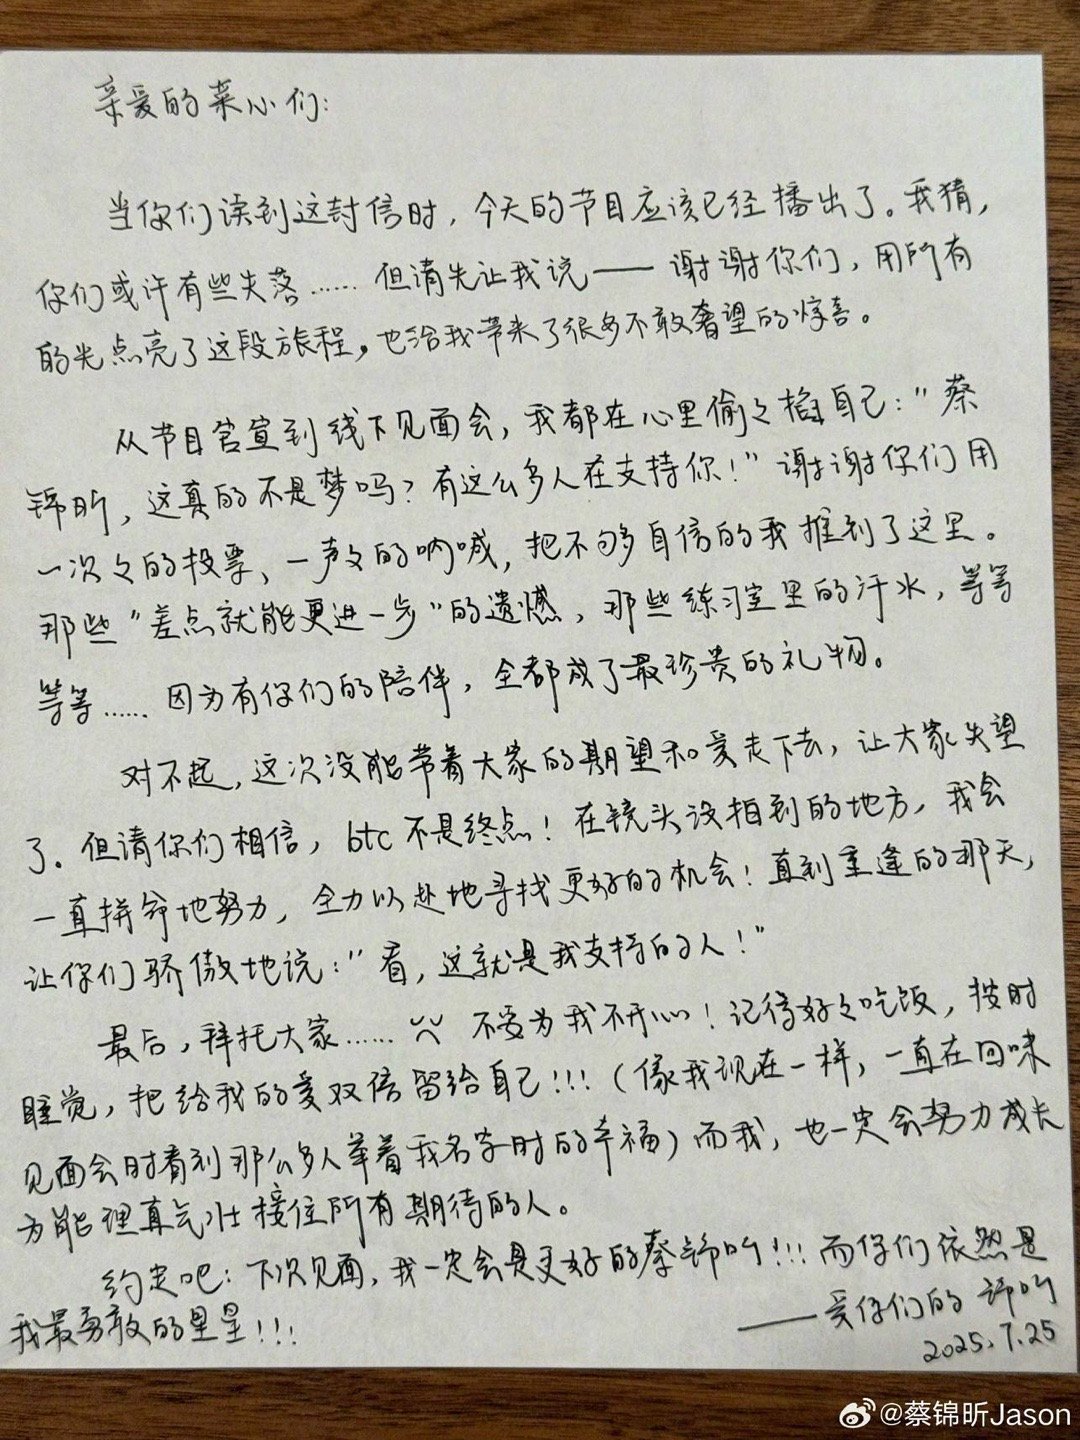 亲爱的菜心们:
当你们读到这封信时，今天的节目应该已经播出了。我猜，
你们或许有些失落……但请先让我说——谢谢你们，用所有
的光点亮了这段旅程，也给我带来了很多不敢奢望的惊喜。
从节目官宣到线下见面会，我都在心里偷々掐自己："蔡
锦昕，这真的不是梦吗？有这么多人在支持你！"谢谢你们用
一次々的投票、一声々的呐喊，把不够自信的我推到了这里。
那些"差点就能更进一步"的遗憾，那些练习室里的汗水，等等
等等……因为有你们的陪伴，全都成了最珍贵的礼物。
对不起，这次没能带着大家的期望和爱走下去，让大家失望
了。但请你们相信，btc不是终点！在镜头没拍到的地方，我会
一直拼命地努力，全力以赴地寻找更好的机会！直到重逢的那天，
让你们骄傲地说："看，这就是我支持的人！"
最后，拜托大家……不要为我不开心！记得好々吃饭，按时
睡觉，把给我的爱双倍留给自己!!!(像我现在一样，一直在回味
见面会时看到那么多人举着我名字时的幸福)而我，也一定会努力成长
为能理直气壮接住所有期待的人。
约定吧：下次见面，我一定会是更好的蔡锦昕!!!而你们依然是
我最勇敢的星星!!!
——爱你们的 锦昕
2025.7.25
@蔡锦昕Jason